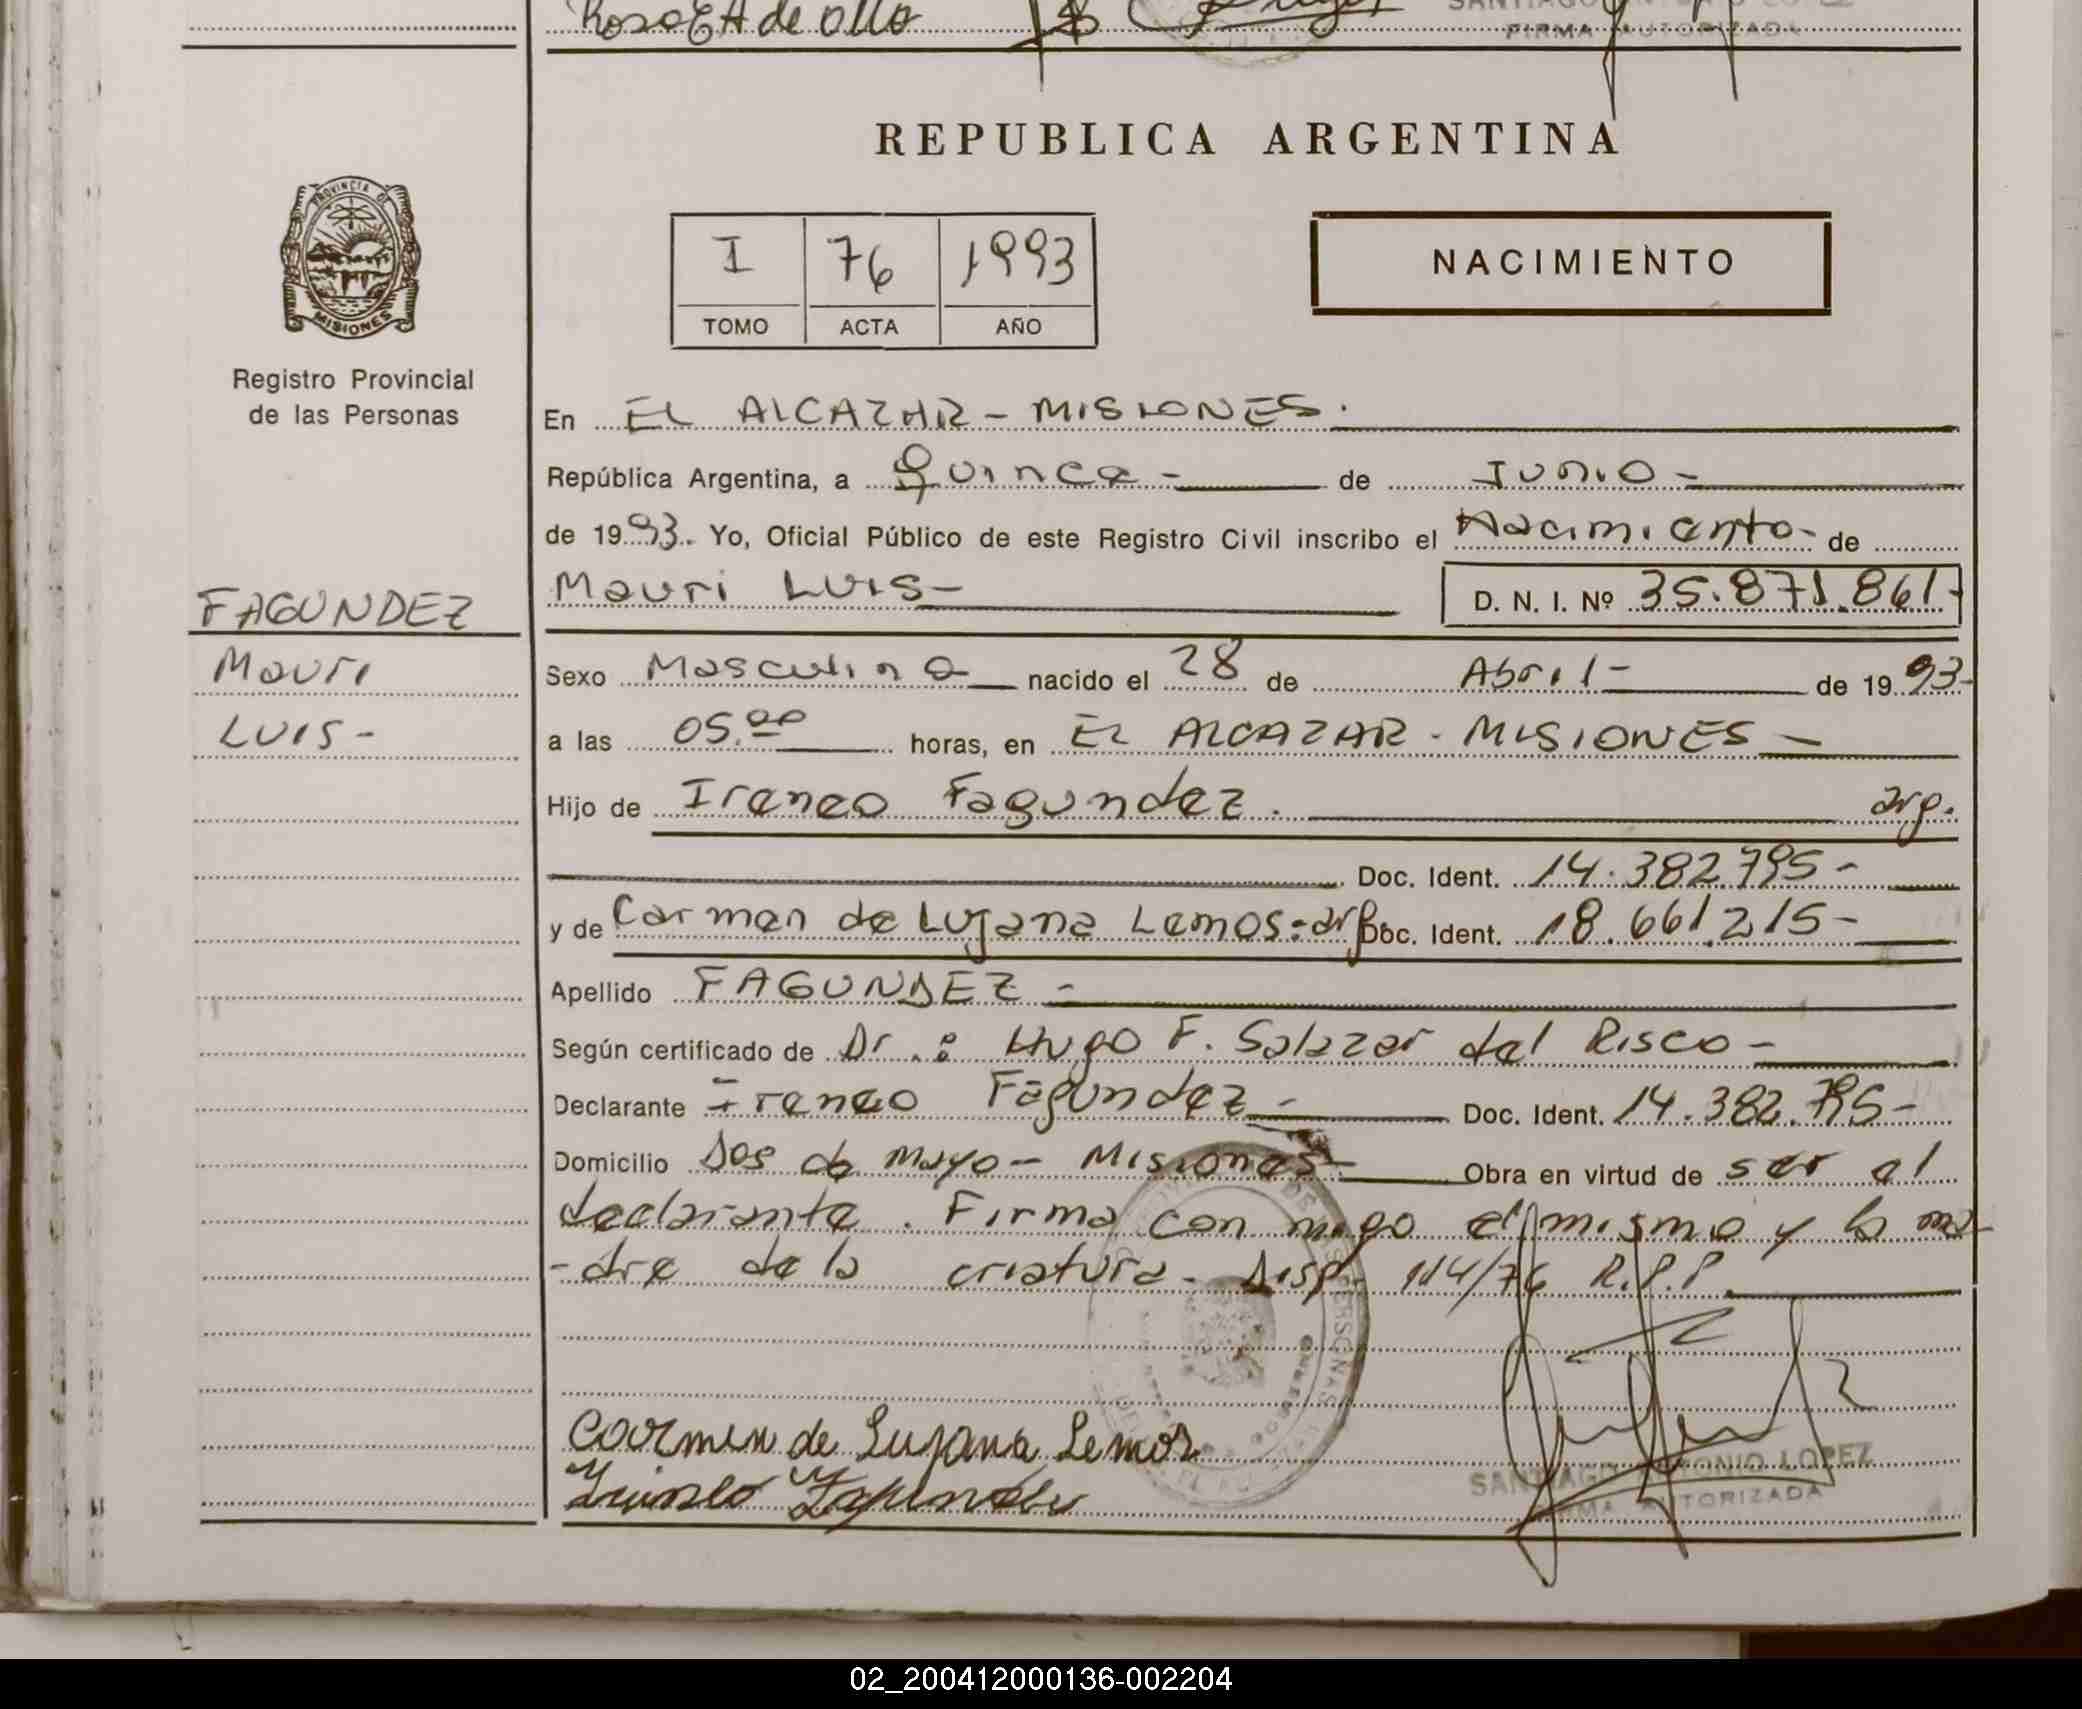 Rosa E H de Olla
SANTIAGO ANTONIO LOPEZ
FIRMA AUTORIZADA
REPUBLICA ARGENTINA
PROVINCIA DE
MISIONES
Registro Provincial
de las Personas
I 76 1993
TOMO ACTA AÑO
NACIMIENTO
En EL ALCAZAR - MISIONES.
República Argentina, a Quince - de Junio -
de 1993. Yo, Oficial Público de este Registro Civil inscribo el Nacimiento - de
FAGUNDEZ
Mauri
LUIS -
Mauri LUIS - D. N. I. Nº 35.871.861-
Sexo Masculino nacido el 28 de Abril - de 1993-
a las 05.00 horas, en EL ALCAZAR - MISIONES -
Hijo de Ireneo Fagundez. arg.
Doc. Ident. 14.382.795 -
y de Carmen de Lujana Lemos = arg. Doc. Ident. 18.661.215 -
Apellido FAGUNDEZ -
Según certificado de Dr.: Hugo F. Salazar del Risco -
Declarante Ireneo Fagundez - Doc. Ident. 14.382.795 -
Domicilio Dos de Mayo - Misiones - Obra en virtud de ser el
declarante. Firma con migo el mismo y la ma-
-dre de la criatura. Disp. 114/76 R.P.P
Carmen de Lujana Lemos
SANTIAGO ANTONIO LOPEZ
FIRMA AUTORIZADA
02_200412000136-002204